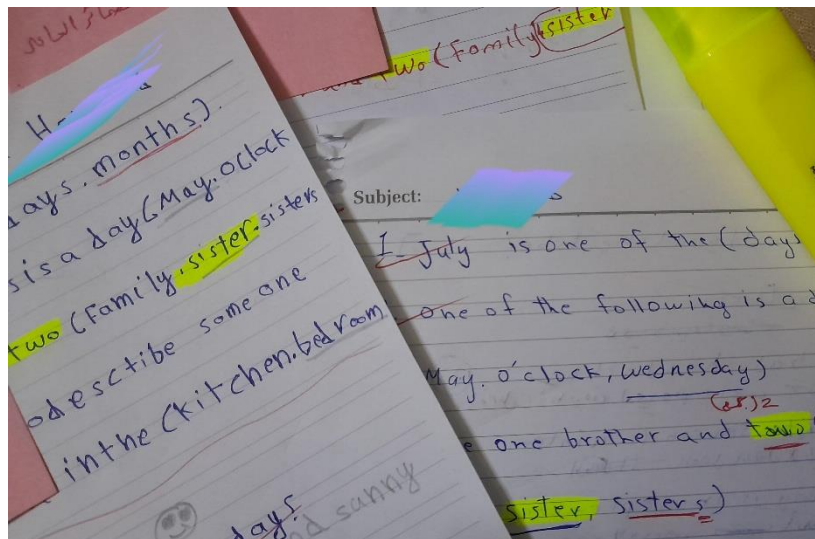 ays. months).
s is a day (May. oclock
two (Family. sister. sisters
describe some one
in the (kitchen. bedroom
days
and sunny
two (Family. sister
Subject:
1- July is one of the (days
one of the following is a
May. o'clock, wednesday)
e one brother and
sister, sisters)